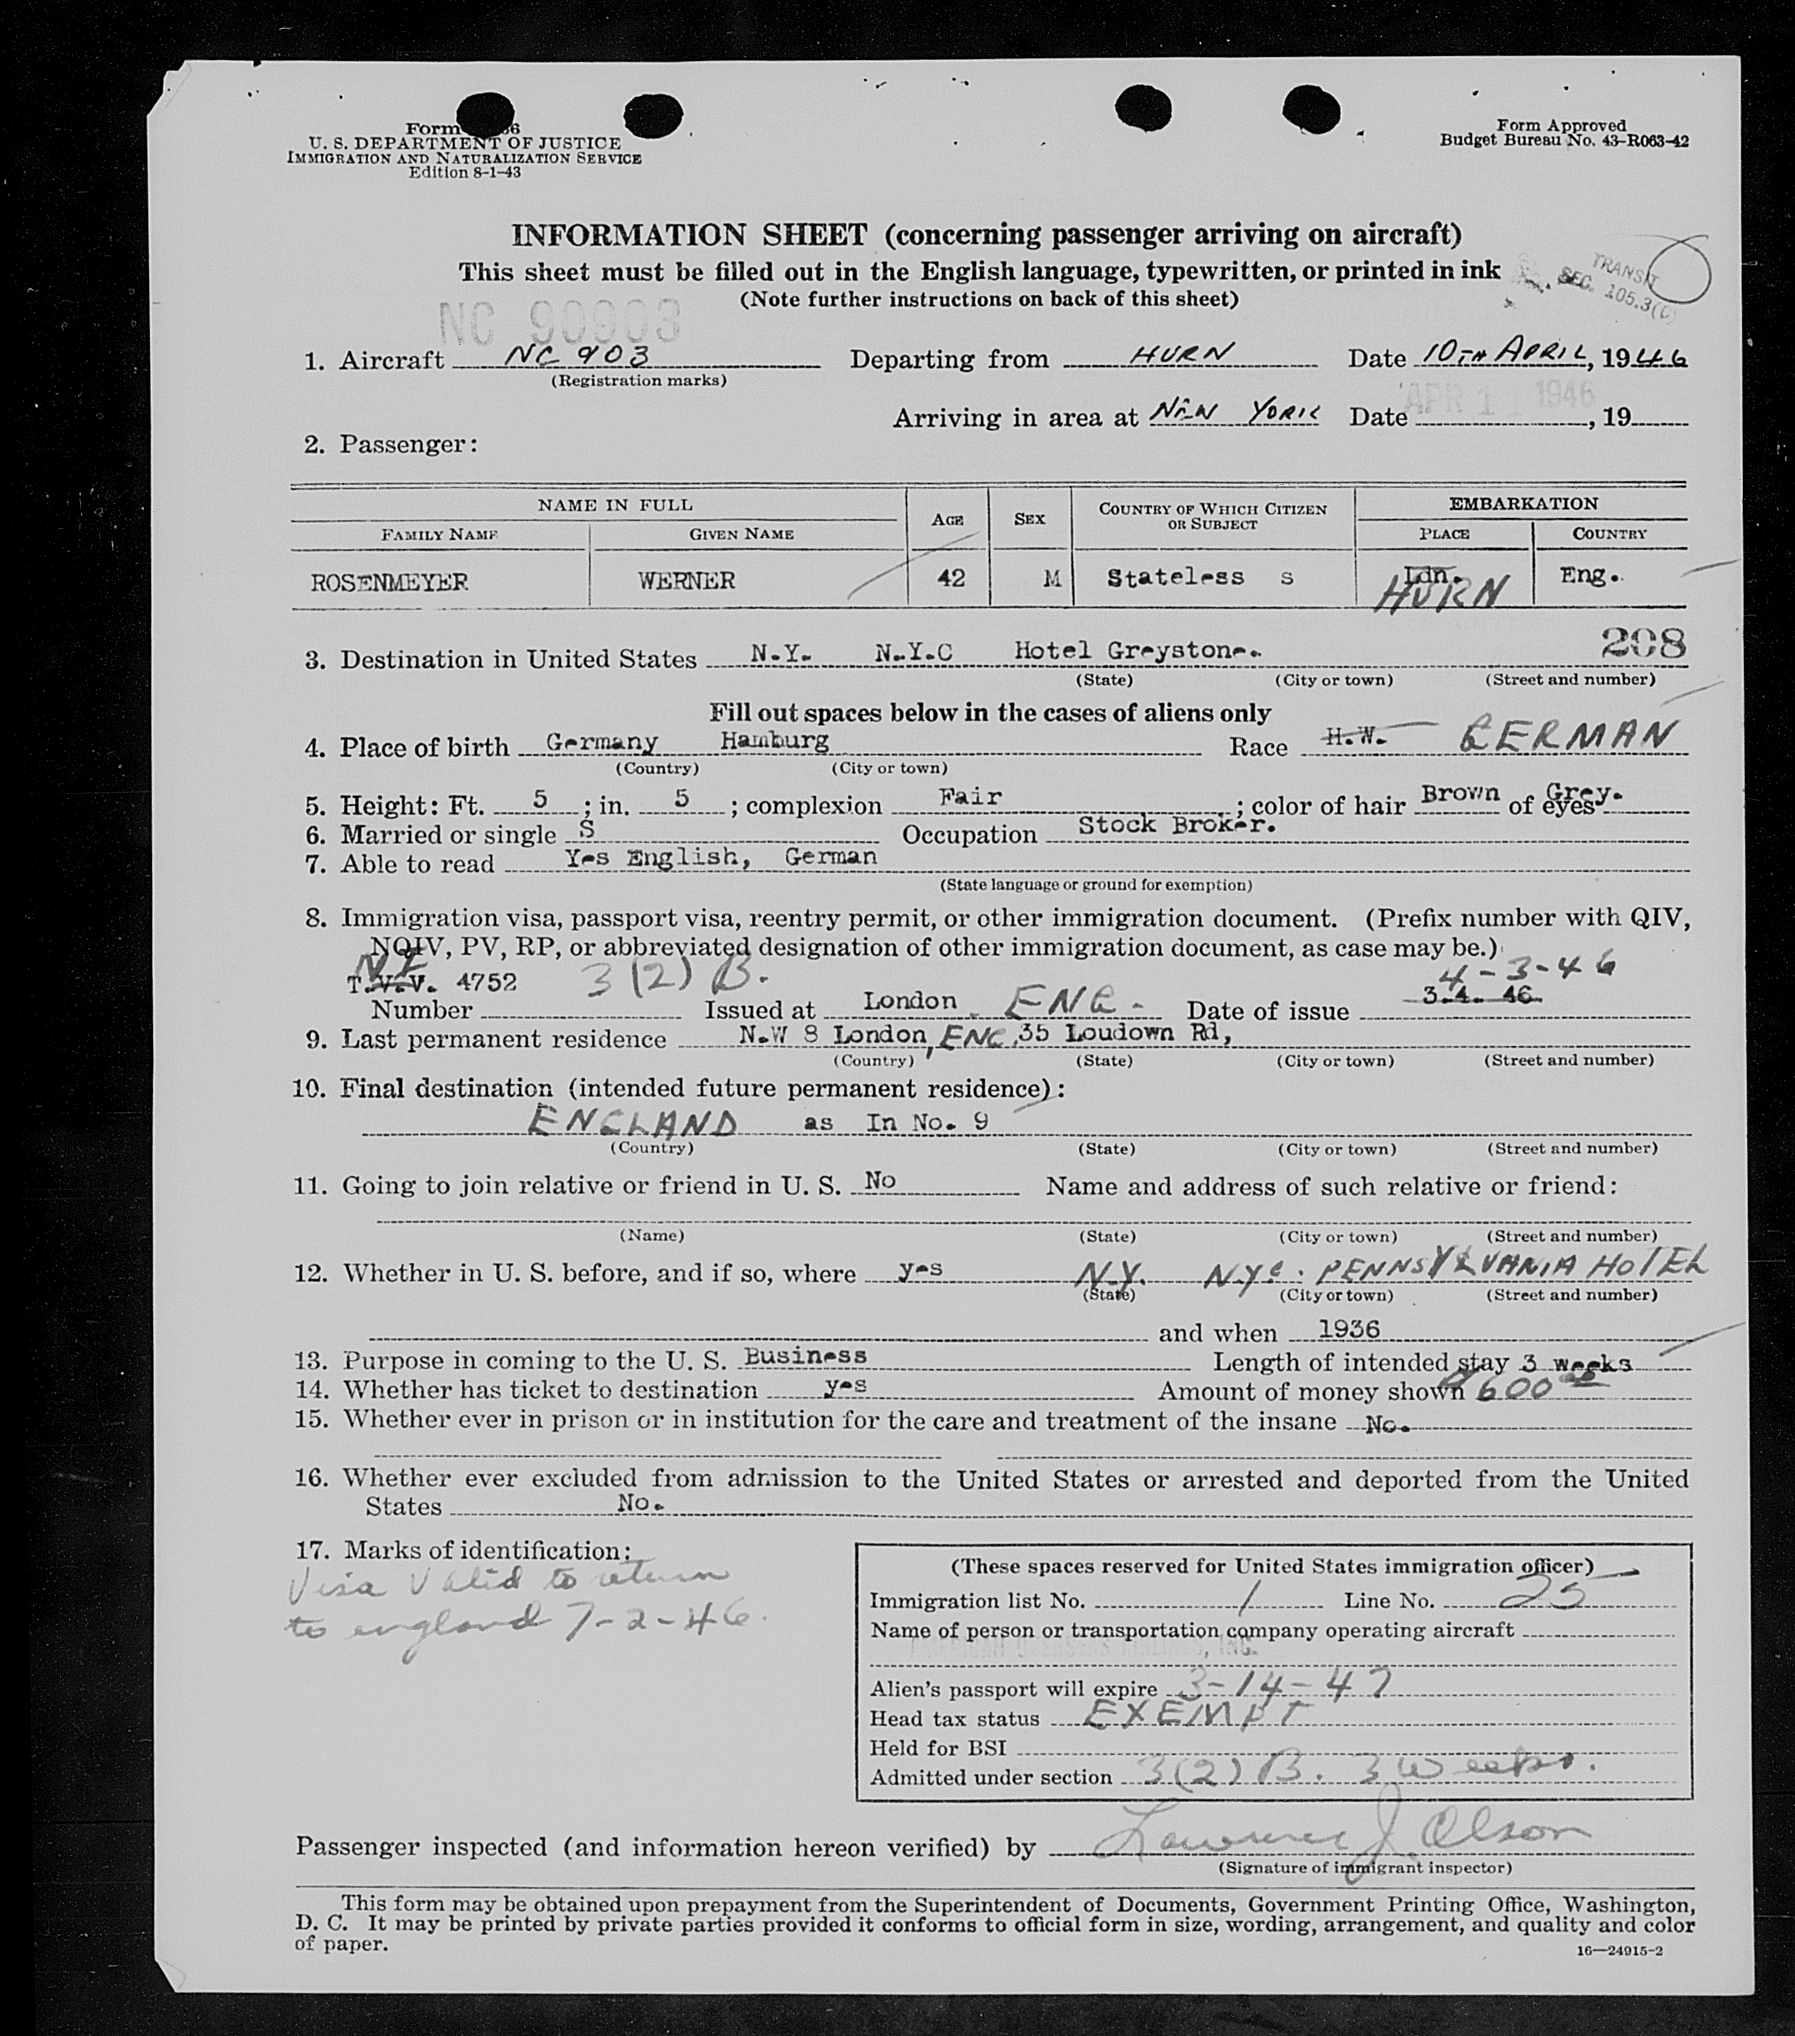 Form 66
U. S. DEPARTMENT OF JUSTICE
IMMIGRATION AND NATURALIZATION SERVICE
Edition 8-1-43
Form Approved
Budget Bureau No. 43-R063-42
INFORMATION SHEET (concerning passenger arriving on aircraft)
This sheet must be filled out in the English language, typewritten, or printed in ink
(Note further instructions on back of this sheet)
TRANSIT
SEC. 105.3(C)
NC 90903
1. Aircraft NC 903 Departing from HURN Date 10TH APRIL, 1946
(Registration marks)
APR 11 1946
Arriving in area at NEW YORK Date , 19
2. Passenger:
NAME IN FULL AGE SEX COUNTRY OF WHICH CITIZEN OR SUBJECT EMBARKATION
FAMILY NAME GIVEN NAME PLACE COUNTRY
ROSENMEYER WERNER 42 M Stateless S Ldn. Eng.
HURN
208
3. Destination in United States N.Y. N.Y.C Hotel Greystone.
(State) (City or town) (Street and number)
Fill out spaces below in the cases of aliens only
4. Place of birth Germany Hamburg Race H.W. GERMAN
(Country) (City or town)
5. Height: Ft. 5 ; in. 5 ; complexion Fair ; color of hair Brown of eyes Grey.
6. Married or single S Occupation Stock Broker.
7. Able to read Yes English, German
(State language or ground for exemption)
8. Immigration visa, passport visa, reentry permit, or other immigration document. (Prefix number with QIV,
NQIV, PV, RP, or abbreviated designation of other immigration document, as case may be.)
T.V.V. 4752 3(2) B. 4-3-46
Number Issued at London ENG. Date of issue 3.4. 46.
9. Last permanent residence N.W 8 London, ENG, 35 Loudown Rd,
(Country) (State) (City or town) (Street and number)
10. Final destination (intended future permanent residence):
ENGLAND as In No. 9
(Country) (State) (City or town) (Street and number)
11. Going to join relative or friend in U. S. No Name and address of such relative or friend:
(Name) (State) (City or town) (Street and number)
12. Whether in U. S. before, and if so, where yes N.Y. N.Y.C. PENNSYLVANIA HOTEL
(State) (City or town) (Street and number)
and when 1936
13. Purpose in coming to the U. S. Business Length of intended stay 3 weeks
14. Whether has ticket to destination yes Amount of money shown $600
15. Whether ever in prison or in institution for the care and treatment of the insane No.
16. Whether ever excluded from admission to the United States or arrested and deported from the United
States No.
17. Marks of identification:
Visa Valid to return
to england 7-2-46.
(These spaces reserved for United States immigration officer)
Immigration list No. 1 Line No. 25
Name of person or transportation company operating aircraft
, INC.
Alien's passport will expire 3-14-47
Head tax status EXEMPT
Held for BSI
Admitted under section 3(2) B. 3 Weeks.
Passenger inspected (and information hereon verified) by Lawrence J. Olson
(Signature of immigrant inspector)
This form may be obtained upon prepayment from the Superintendent of Documents, Government Printing Office, Washington,
D. C. It may be printed by private parties provided it conforms to official form in size, wording, arrangement, and quality and color
of paper.
16—24915-2